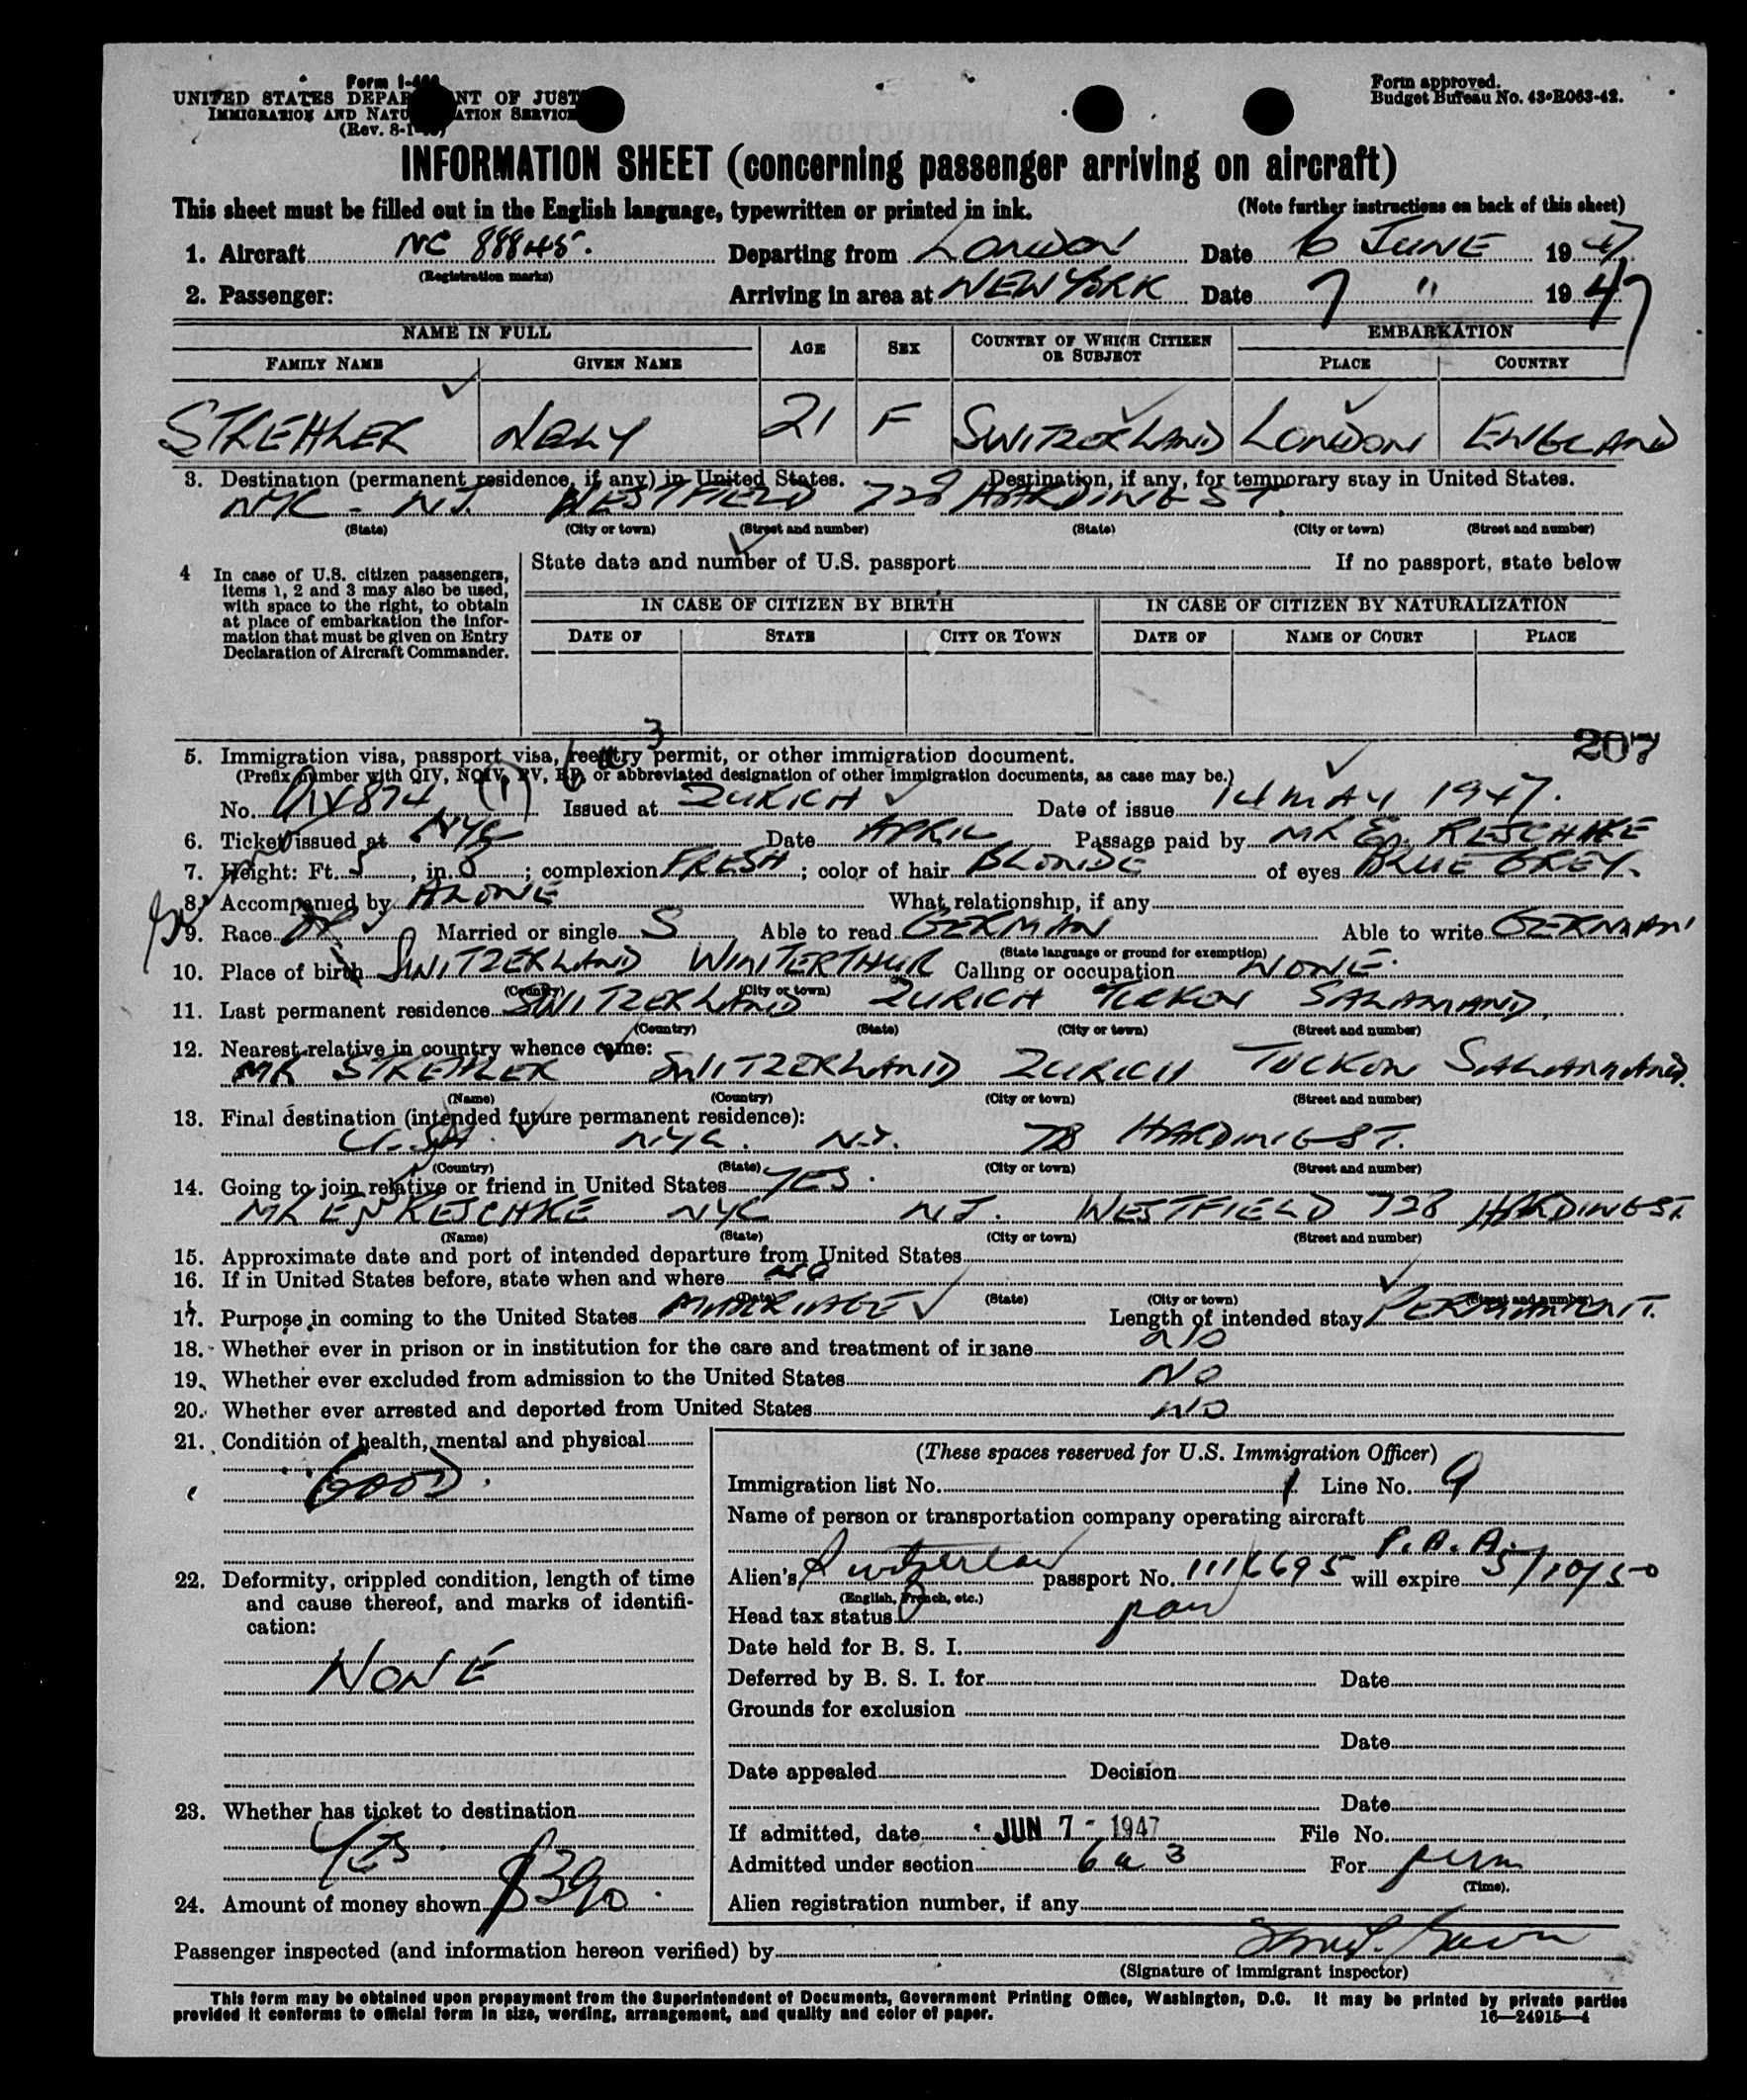 Form I-466
UNITED STATES DEPARTMENT OF JUSTICE
IMMIGRATION AND NATURALIZATION SERVICE
(Rev. 8-1-
Form approved.
Budget Bureau No. 43-R063-42.
INFORMATION SHEET (concerning passenger arriving on aircraft)
This sheet must be filled out in the English language, typewritten or printed in ink. (Note further instructions on back of this sheet)
1. Aircraft NC 88845. Departing from LONDON Date 6 JUNE 1947
(Registration marks)
2. Passenger: Arriving in area at NEW YORK Date 7 " 1947
NAME IN FULL AGE SEX COUNTRY OF WHICH CITIZEN OR SUBJECT EMBARKATION
FAMILY NAME GIVEN NAME PLACE COUNTRY
STREHLER NELY 21 F SWITZERLAND LONDON ENGLAND
3. Destination (permanent residence, if any) in United States. Destination, if any, for temporary stay in United States.
NYC - N.J. WESTFIELD 728 HARDING ST.
(State) (City or town) (Street and number) (State) (City or town) (Street and number)
4 In case of U.S. citizen passengers, items 1, 2 and 3 may also be used, with space to the right, to obtain at place of embarkation the information that must be given on Entry Declaration of Aircraft Commander.
State date and number of U.S. passport If no passport, state below
IN CASE OF CITIZEN BY BIRTH IN CASE OF CITIZEN BY NATURALIZATION
DATE OF STATE CITY OR TOWN DATE OF NAME OF COURT PLACE
207
5. Immigration visa, passport visa, reentry permit, or other immigration document.
(Prefix number with QIV, NQIV, PV, RP, or abbreviated designation of other immigration documents, as case may be.)
6 a 3
No. QIV874 (1) Issued at ZURICH Date of issue 14 MAY 1947.
6. Ticket issued at NYC Date APRIL Passage paid by MR E. RESCHKE
7. Height: Ft. 5, in. 8; complexion FRESH; color of hair BLONDE of eyes BLUE GREY.
8. Accompanied by ALONE What relationship, if any
9. Race Married or single S Able to read GERMAN Able to write GERMAN
(State language or ground for exemption)
10. Place of birth SWITZERLAND WINTERTHUR Calling or occupation NONE.
(Country) (City or town)
11. Last permanent residence SWITZERLAND ZURICH TUCKON SALAMAND.
(Country) (State) (City or town) (Street and number)
12. Nearest relative in country whence came:
MR STREHLER SWITZERLAND ZURICH TUCKON SALAMAND.
(Name) (Country) (City or town) (Street and number)
13. Final destination (intended future permanent residence):
U.SA. NYC. N.Y. 728 HARDING ST.
(Country) (State) (City or town) (Street and number)
14. Going to join relative or friend in United States YES.
MR EN RESCHKE NYC N.J. WESTFIELD 728 HARDING ST.
(Name) (State) (City or town) (Street and number)
15. Approximate date and port of intended departure from United States
16. If in United States before, state when and where NO
(Date) (State) (City or town) (Street and number)
17. Purpose in coming to the United States MARRIAGE Length of intended stay PERMANENT.
18. Whether ever in prison or in institution for the care and treatment of insane NO
19. Whether ever excluded from admission to the United States NO
20. Whether ever arrested and deported from United States NO
21. Condition of health, mental and physical
GOOD.
22. Deformity, crippled condition, length of time and cause thereof, and marks of identification:
NONE
23. Whether has ticket to destination
YES.
24. Amount of money shown $390.
(These spaces reserved for U.S. Immigration Officer)
Immigration list No. 1 Line No. 9
Name of person or transportation company operating aircraft
P.A.A.
Alien's Switzerland passport No. 1116695 will expire 5/10/50
(English, French, etc.)
Head tax status
Date held for B. S. I.
Deferred by B. S. I. for Date
Grounds for exclusion
Date
Date appealed Decision
Date
If admitted, date JUN 7 - 1947 File No.
Admitted under section 6 a 3 For perm
(Time).
Alien registration number, if any
Passenger inspected (and information hereon verified) by
(Signature of immigrant inspector)
This form may be obtained upon prepayment from the Superintendent of Documents, Government Printing Office, Washington, D.C. It may be printed by private parties
provided it conforms to official form in size, wording, arrangement, and quality and color of paper. 16—24915—4